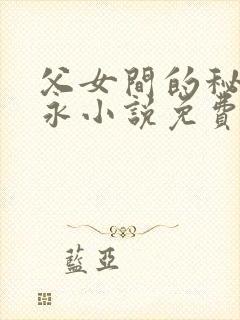 父女間的秘
永小說免費
藍亞